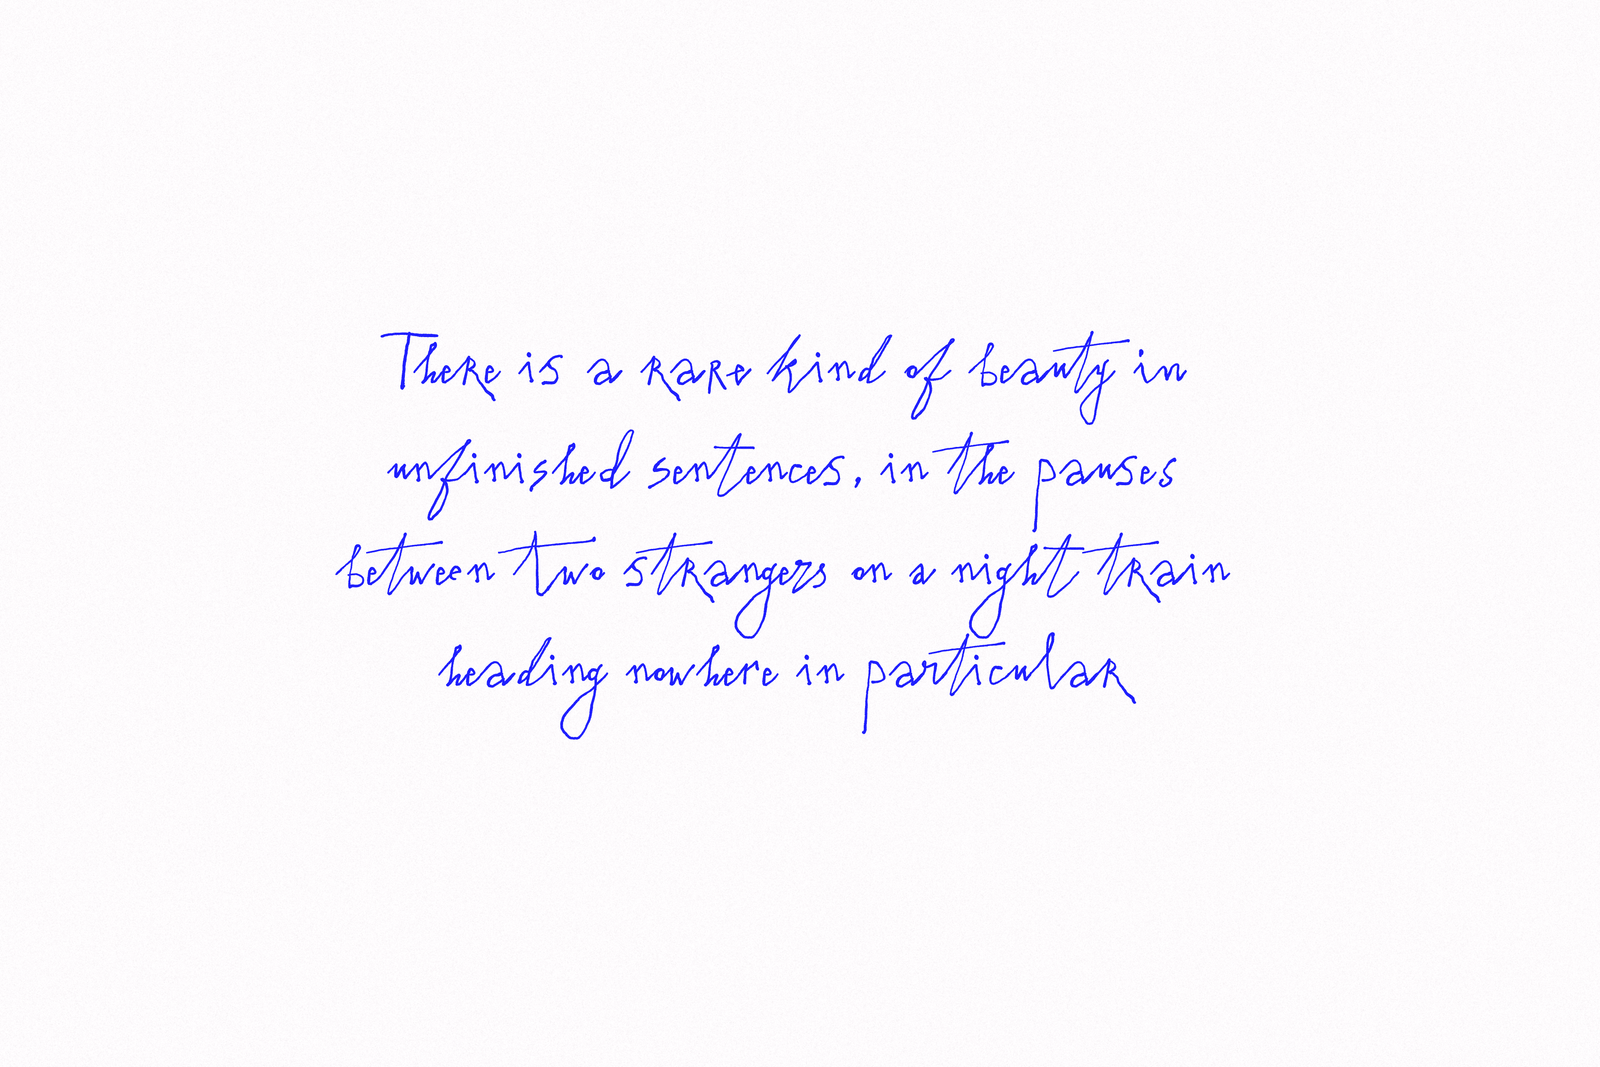 There is a rare kind of beauty in
unfinished sentences, in the pauses
between two strangers on a night train
heading nowhere in particular